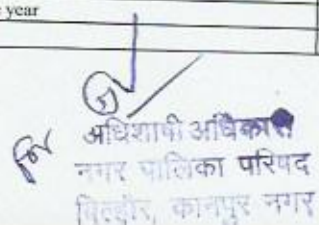 year
अधिशाषी अधिकारी
नगर पालिका परिषद
बिल्हौर, कानपुर नगर